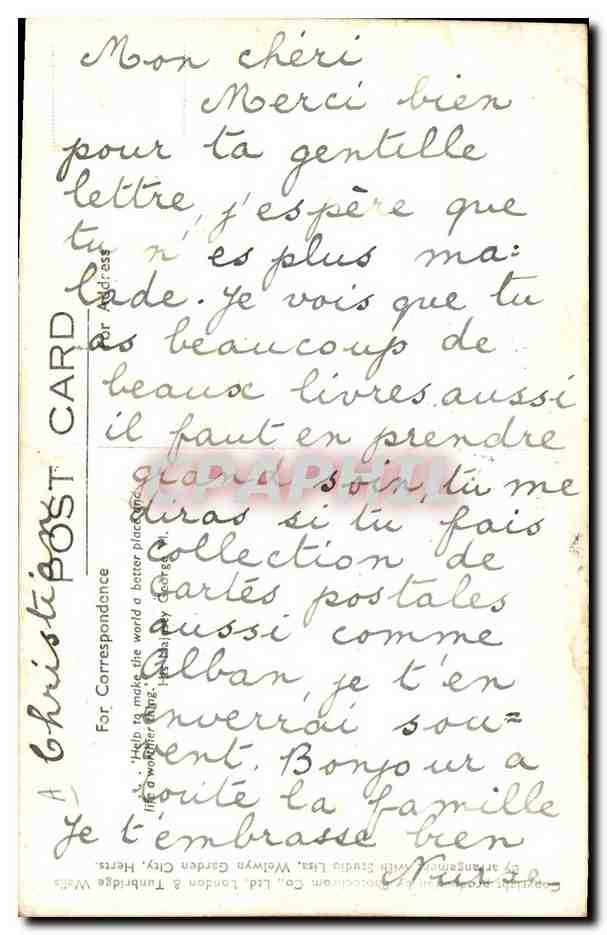 Mon chéri
Merci bien
pour ta gentille
lettre, j'espère que
tu n'es plus ma=
lade. Je vois que tu
as beaucoup de
beaux livres aussi
il faut en prendre
grand soin, tu me
diras si tu fais
collection de
cartes postales
aussi comme
Alban, je t'en
enverrai sou=
vent. Bonjour a
toute la famille
Je t'embrasse bien
A Christian
POST CARD
For Address
For Correspondence
'Help to make the world a better place and
life a worthier thing.'
His Majesty George VI.
Copyright produced by Photochrom Co., Ltd., London & Tunbridge Wells
by arrangement with Studio Lisa, Welwyn Garden City, Herts.
CPAPHIL